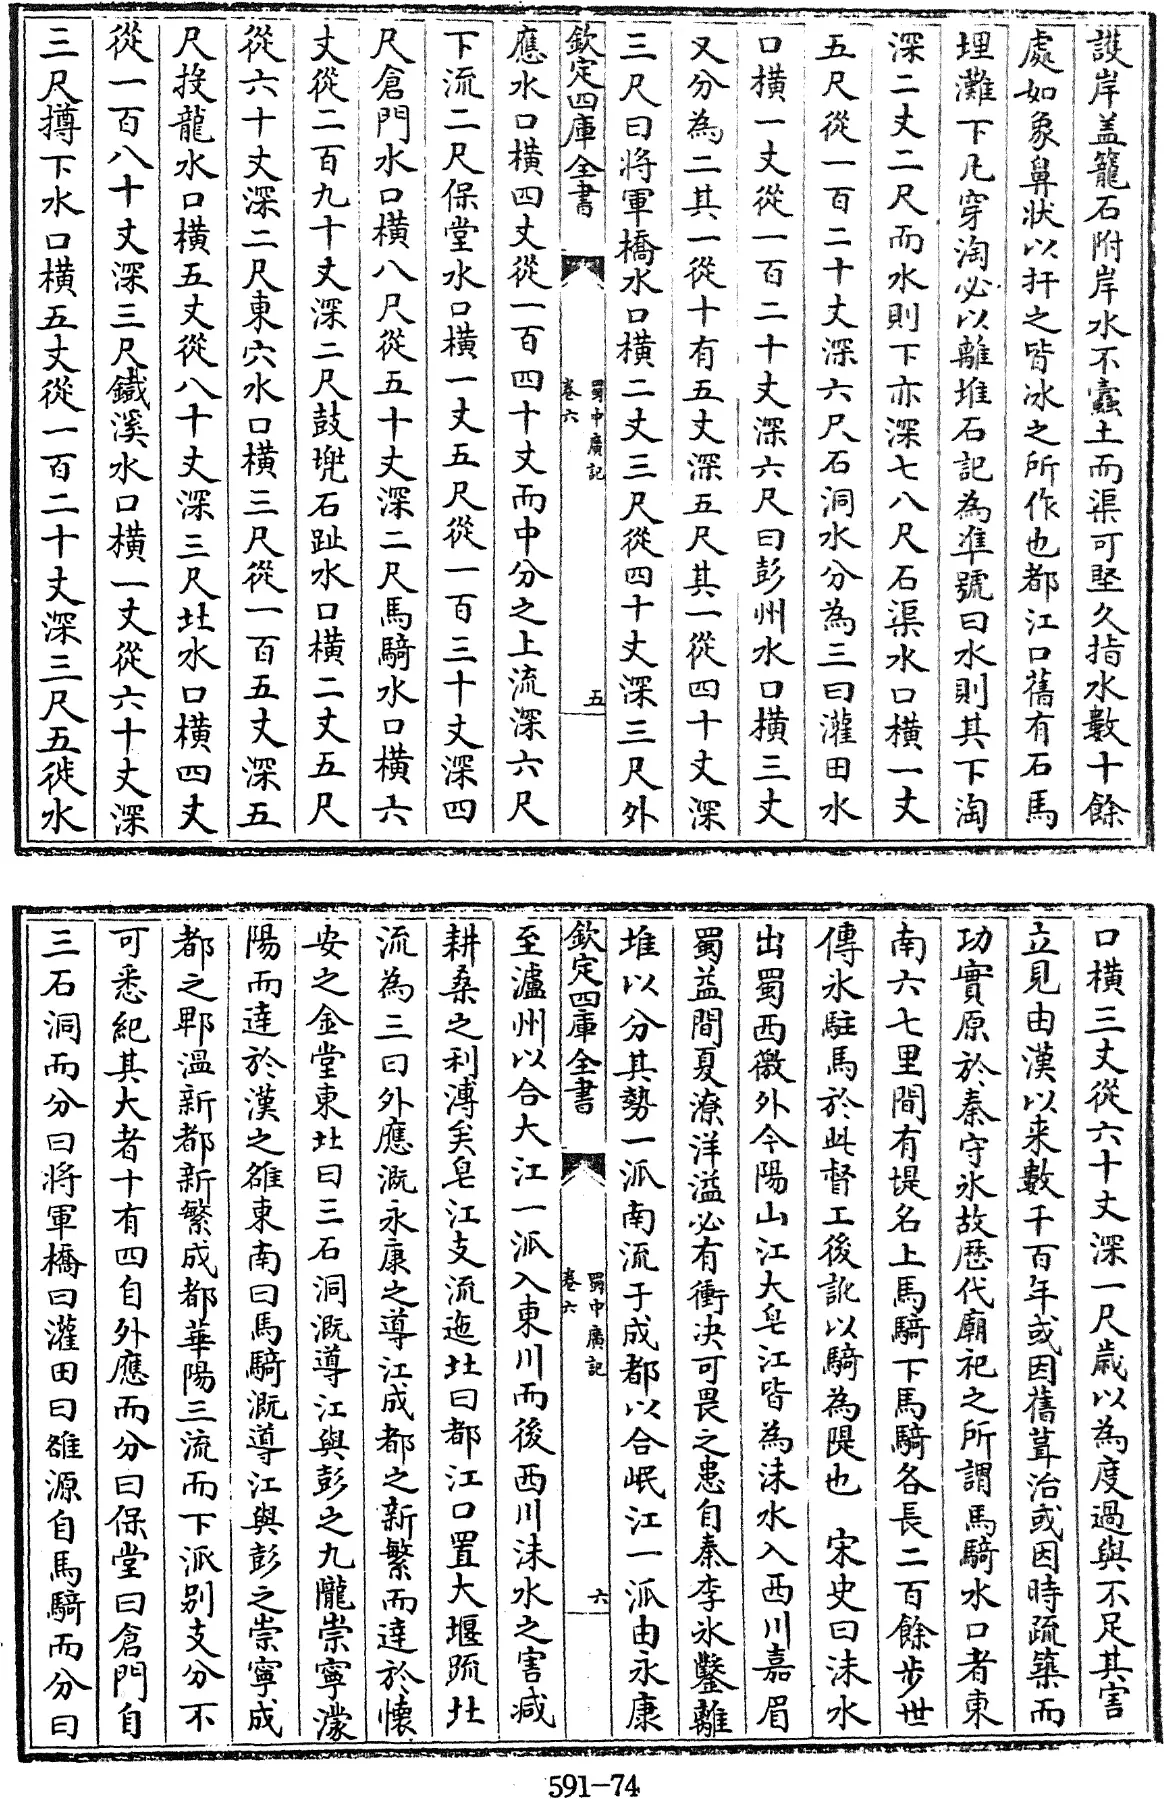 護岸盖籠石附岸水不蠹土而渠可堅久指水數十餘
處如象鼻狀以扞之皆冰之所作也都江口舊有石馬
埋灘下凡穿淘必以離堆石記為準號曰水則其下淘
深二丈二尺而水則下亦深七八尺石渠水口横一丈
五尺從一百二十丈深六尺石洞水分為三曰灌田水
口横一丈從一百二十丈深六尺曰彭州水口横三丈
又分為二其一從十有五丈深五尺其一從四十丈深
三尺曰將軍橋水口横二丈三尺從四十丈深三尺外
欽定四庫全書
蜀中廣記
卷六
五
應水口横四丈從一百四十丈而中分之上流深六尺
下流二尺保堂水口横一丈五尺從一百三十丈深四
尺倉門水口横八尺從五十丈深二尺馬騎水口横六
丈從二百九十丈深二尺鼓兠石趾水口横二丈五尺
從六十丈深二尺東穴水口横三尺從一百五丈深五
尺投龍水口横五丈從八十丈深三尺北水口横四丈
從一百八十丈深三尺鐵溪水口横一丈從六十丈深
三尺撙下水口横五丈從一百二十丈深三尺五徙水
口横三丈從六十丈深一尺歲以為度過與不足其害
立見由漢以来數千百年或因舊葺治或因時疏築而
功實原於秦守氷故歴代廟祀之所謂馬騎水口者東
南六七里間有堤名上馬騎下馬騎各長二百餘步世
傳氷駐馬於此督工後訛以騎為隄也　宋史曰沬水
出蜀西徼外今陽山江大皂江皆為沬水入西川嘉眉
蜀益間夏潦洋溢必有衝决可畏之患自秦李氷鑿離
堆以分其勢一派南流于成都以合岷江一派由永康
欽定四庫全書
蜀中廣記
卷六
六
至瀘州以合大江一派入東川而後西川沬水之害减
耕桑之利溥矣皂江支流迤北曰都江口置大堰疏北
流為三曰外應溉永康之導江成都之新繁而達於懐
安之金堂東北曰三石洞溉導江與彭之九隴崇寧濛
陽而達於漢之雒東南曰馬騎溉導江與彭之崇寧成
都之郫温新都新繁成都華陽三流而下派别支分不
可悉紀其大者十有四自外應而分曰保堂曰倉門自
三石洞而分曰將軍橋曰灌田曰雒源自馬騎而分曰
591-74